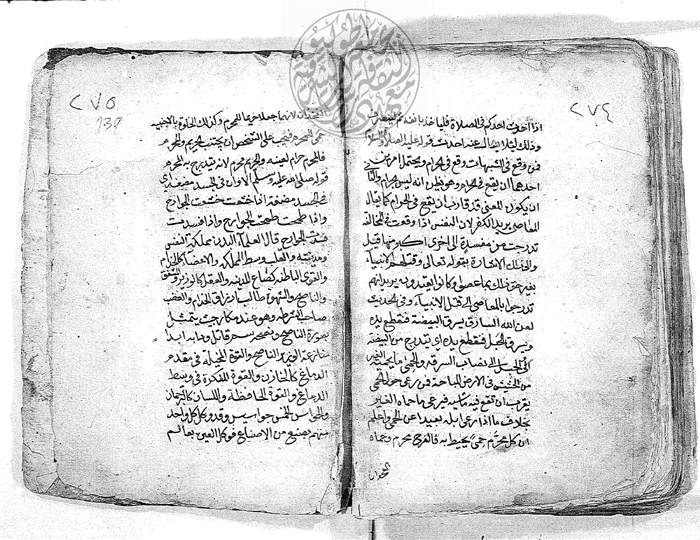 ٢٧٤
اذا احدث احدكم في الصلاة فلياخذ بانفه ثم لينصرف
وذلك ليلا يقال عنه احدث قوله عليه الصلاة والسلام
فمن وقع في الشبهات وقع في الحرام ويحتمل امرين
احدهما ان يقع في الحرام وهو يظن انه ليس بحرام والثاني
ان يكون المعنى قد قارب ان يقع في الحرام كما يقال
المعاصي بريد الكفر لان النفس اذا وقعت في المخالفة
تدرجت من مفسدة الى اخرى اكبر منها قيل
والى ذلك الاشارة بقوله تعالى وقتلهم الانبياء
بغير حق ذلك بما عصوا وكانوا يعتدون يريد انهم
تدرجوا بالمعاصي الى قتل الانبياء وفي الحديث
لعن الله السارق يسرق البيضة فتقطع يده
ويسرق الحبل فتقطع يده اي يتدرج من البيضة
الى الحبل الى نصاب السرقة والحمى ما يحميه الغير
من الحشيش في الارض المباحة فمن رعى حول الحمى
يقرب ان تقع فيه ماشيته فيرعى ما حماه الغير
بخلاف ما اذا رعى ابله بعيدا عن الحمى واعلم
ان كل محرم حمى يحيط به فالفرج محرم وحماه
الفخذان
٢٧٥
139
الفخذان لانهما جعلا حريما للمحرم وكذلك الخلوة بالاجنبية
حمى للمحرم فيجب على الشخص ان يجتنب الحريم والمحرم
فالمحرم حرام لعينه والحريم محرم لانه يتدرج به الى المحرم
قوله صلى الله عليه وسلم الا وان في الجسد مضغة اي
في الجسد مضغة اذا خشعت خشعت الجوارح
واذا طمحت طمحت الجوارح واذا فسدت
فسدت الجوارح قال العلماء البدن مملكة النفس
ومدينته والقلب وسط المملكة والاعضا كالخدام
والقوى الباطنة كضياع المدينة والعقل كالوزير المشفق
والناصح والشهوة طالب ارزاق الخدام والغضب
صاحب الشرطة وهو عبد مكار خبيث يتمثل
بصورة الناصح ونصحه سم قاتل ودابه ابدا
منازعة الوزير الناصح والقوة المخيلة في مقدم
الدماغ كالخازن والقوة المفكرة في وسط
الدماغ والقوة الحافظة واللسان كالترجمان
والحواس الخمس جواسيس وقد وكل كل واحد
منهم بصنيع من الاصناع فوكل العين بعالم